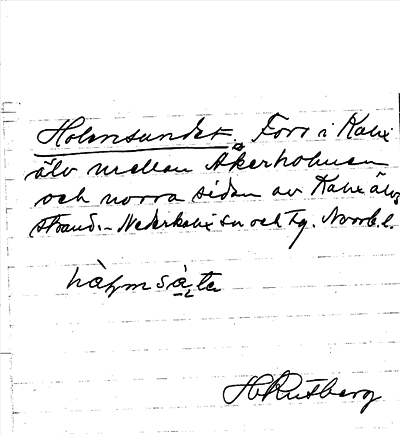 Holmsundet, Fors i Kalix
älv mellan Åkerholmen
och norra sidan av Kalix älvs
strand. - Nederkalix sn och tg. Norrb. l.
hå̀ḷmså̀ṇte
H Rutberg